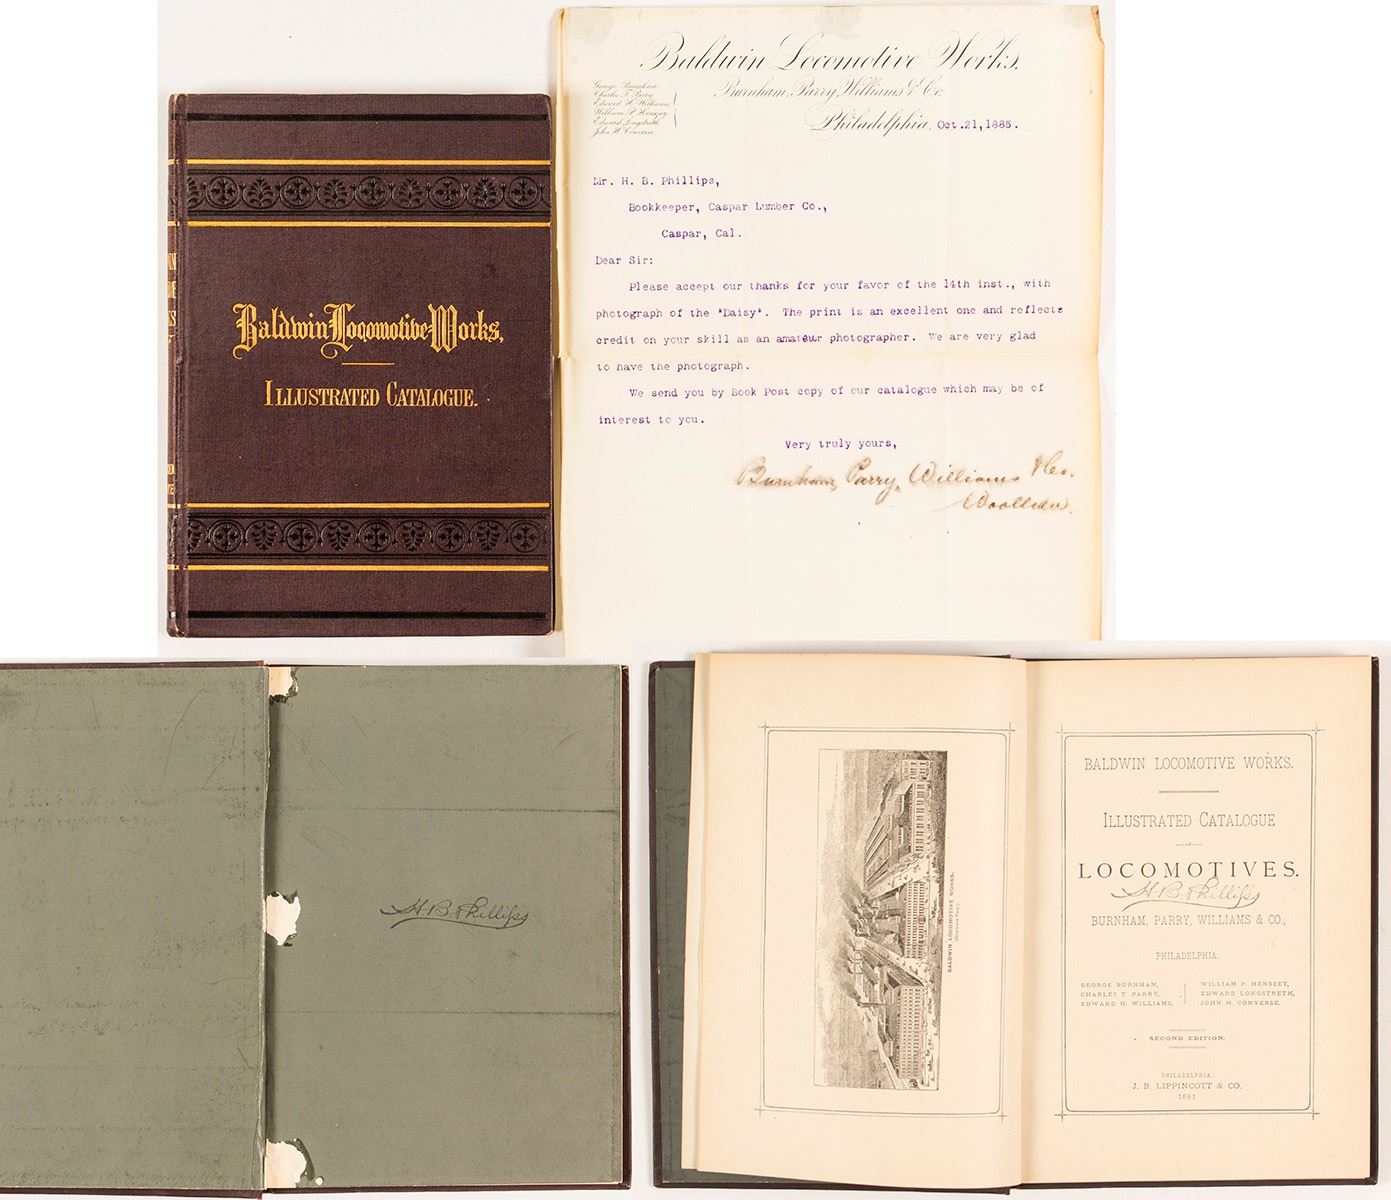 Baldwin Locomotive Works,
Illustrated Catalogue.
Baldwin Locomotive Works.
Burnham, Parry, Williams & Co.
George Burnham
Charles T. Parry
Edward H. Williams
William P. Henszey
Edward Longstreth
John H. Converse
Philadelphia, Oct.21,1885.
Mr. H. B. Phillips,
Bookkeeper, Caspar Lumber Co.,
Caspar, Cal.
Dear Sir:
Please accept our thanks for your favor of the 14th inst., with
photograph of the "Daisy". The print is an excellent one and reflects
credit on your skill as an amateur photographer. We are very glad
to have the photograph.
We send you by Book Post copy of our catalogue which may be of
interest to you.
Very truly yours,
Burnham, Parry, Williams & Co.
H.B. Phillips
BALDWIN LOCOMOTIVE WORKS.
BALDWIN LOCOMOTIVE WORKS.
ILLUSTRATED CATALOGUE
OF
LOCOMOTIVES.
H.B. Phillips
BURNHAM, PARRY, WILLIAMS & CO.,
PHILADELPHIA.
GEORGE BURNHAM,
CHARLES T. PARRY,
EDWARD H. WILLIAMS,
WILLIAM P. HENSZEY,
EDWARD LONGSTRETH,
JOHN H. CONVERSE.
SECOND EDITION.
PHILADELPHIA:
J. B. LIPPINCOTT & CO.
1881.